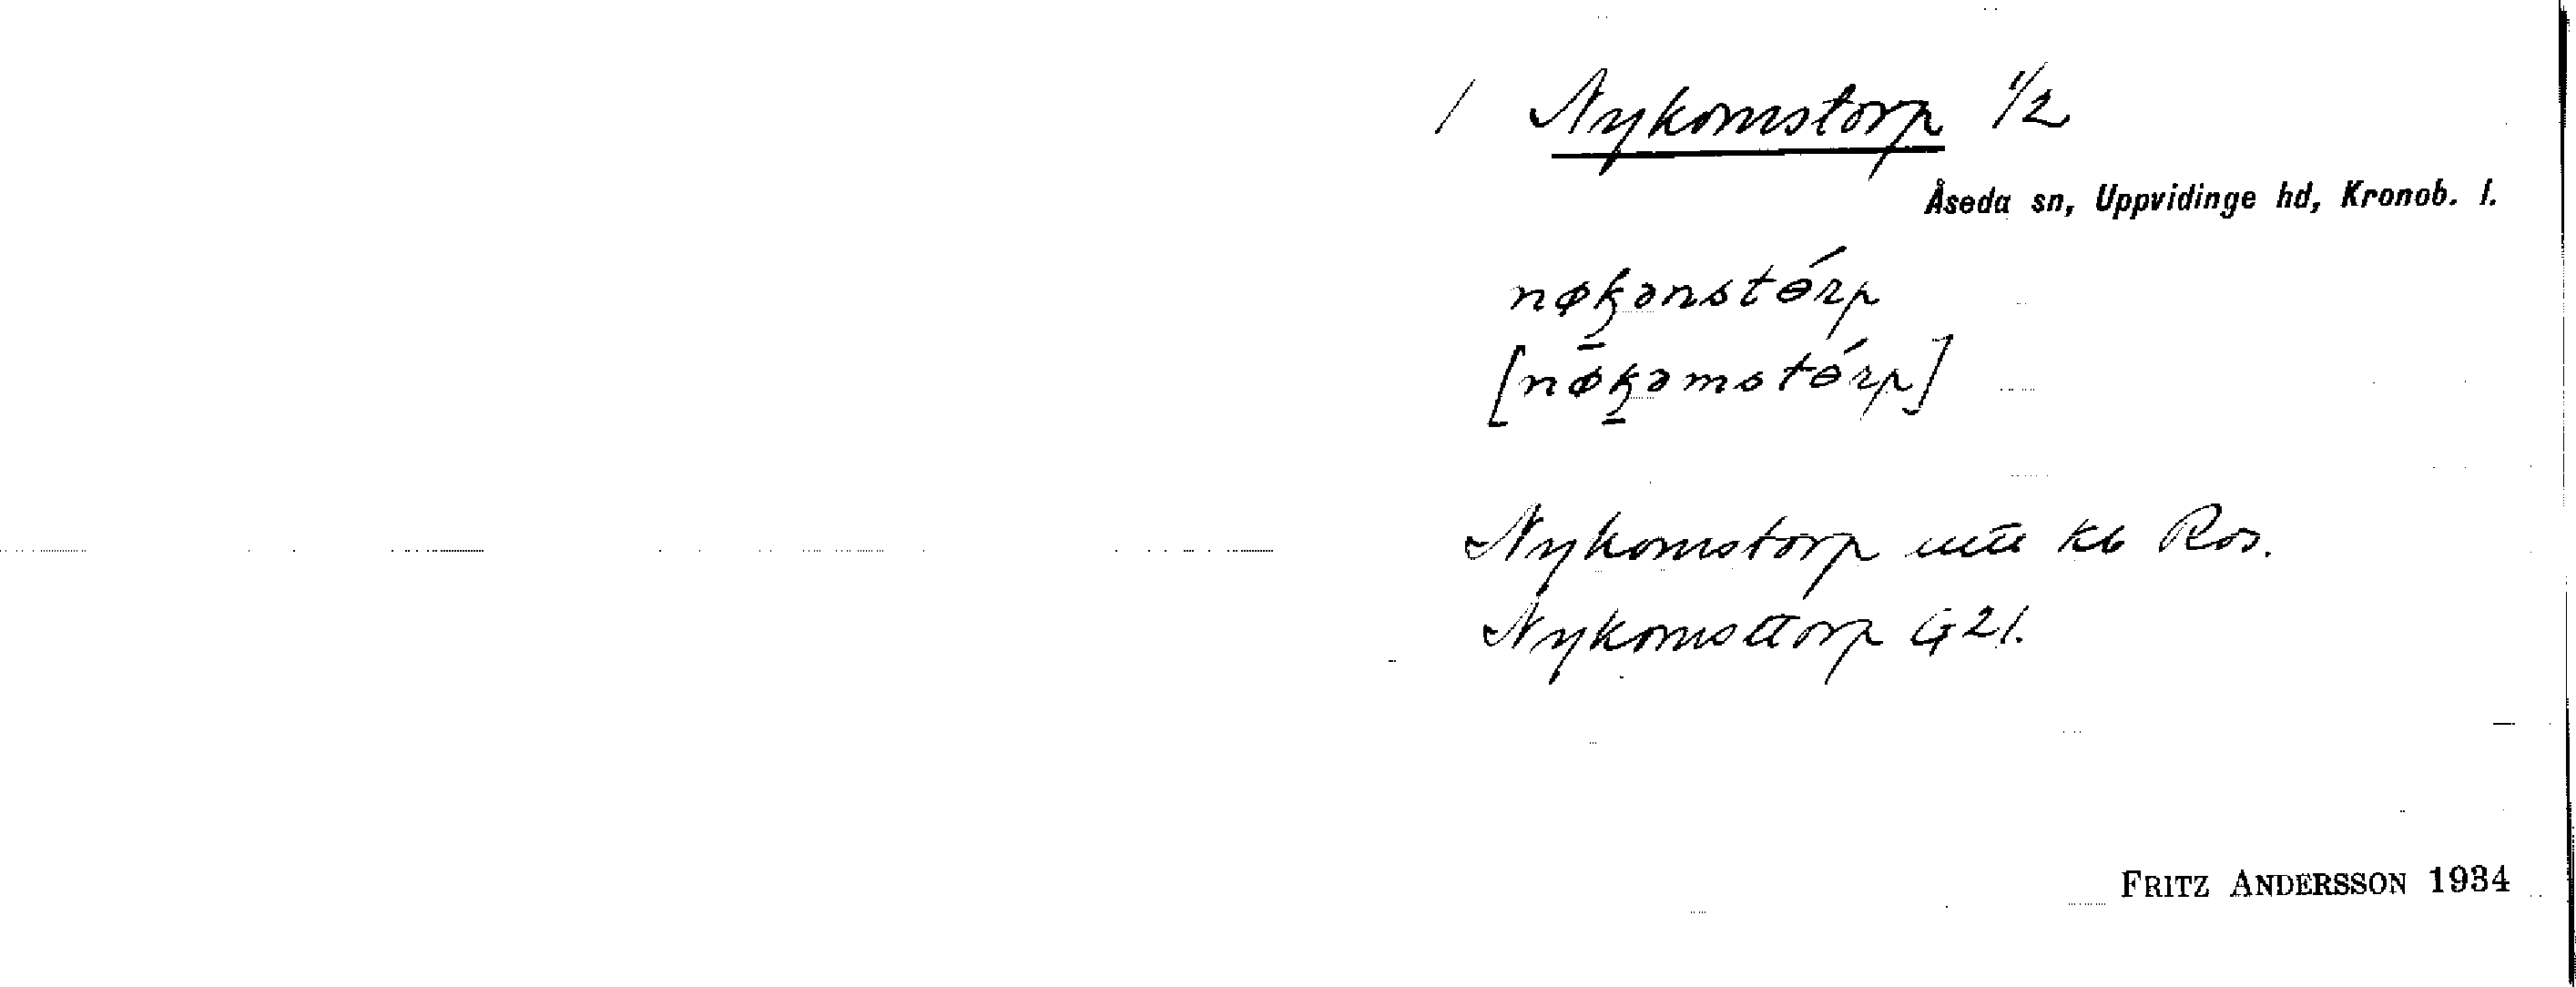 / Nykomstorp 1/2
Åseda sn, Uppvidinge hd, Kronob. l.
nøkənstɵ́rp
[nøkəmstɵ́rp]
Nykomstorp kb Ros.
Nykomsttorp G21.
FRITZ ANDERSSON 1934